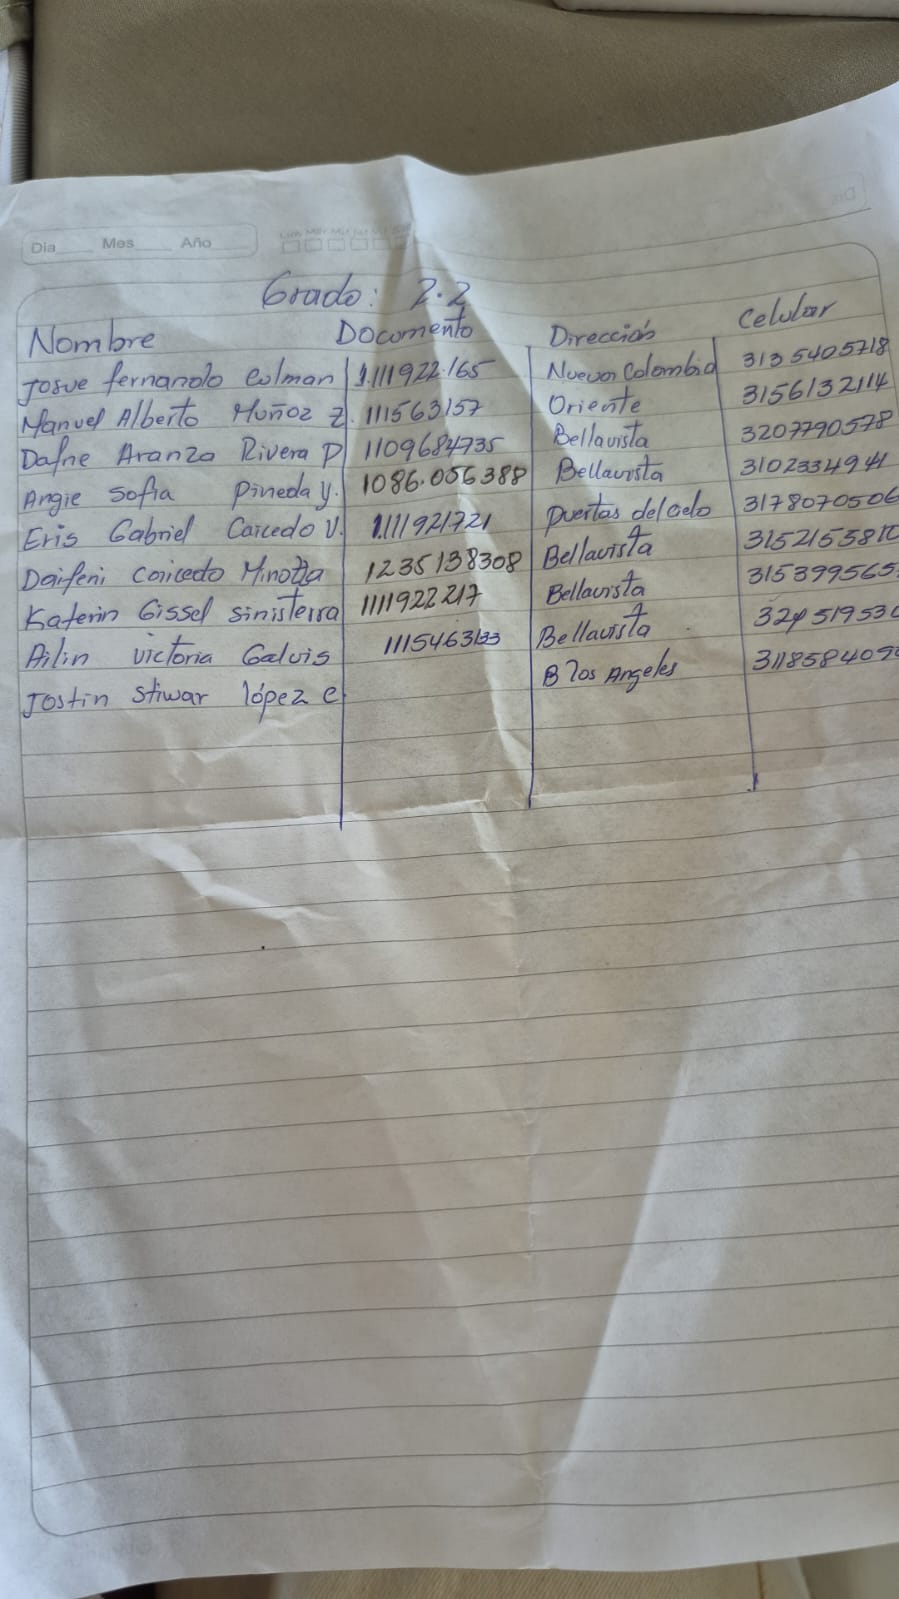 Dia Mes Año
Grado: 2.2
Nombre Documento Dirección Celular
Josue fernando Colman 1.111922.165 Nueva Colombia 3135405718
Manuel Alberto Muñoz Z. 111563157 Oriente 3156132114
Dafne Aranza Rivera P 1109684735 Bellavista 3207790578
Angie Sofia Pineda y. 1086.056388 Bellavista 3102334941
Eris Gabriel Caicedo V. 1.111921721 puertas del cielo 3178070506
Daifeni Caicedo Minotta 1235138308 Bellavista
Katerin Gissel sinisterra 1111922217 Bellavista
Ailin victoria Galvis 1115463133 Bellavista
Jostin Stiwar lópez C. B los Angeles